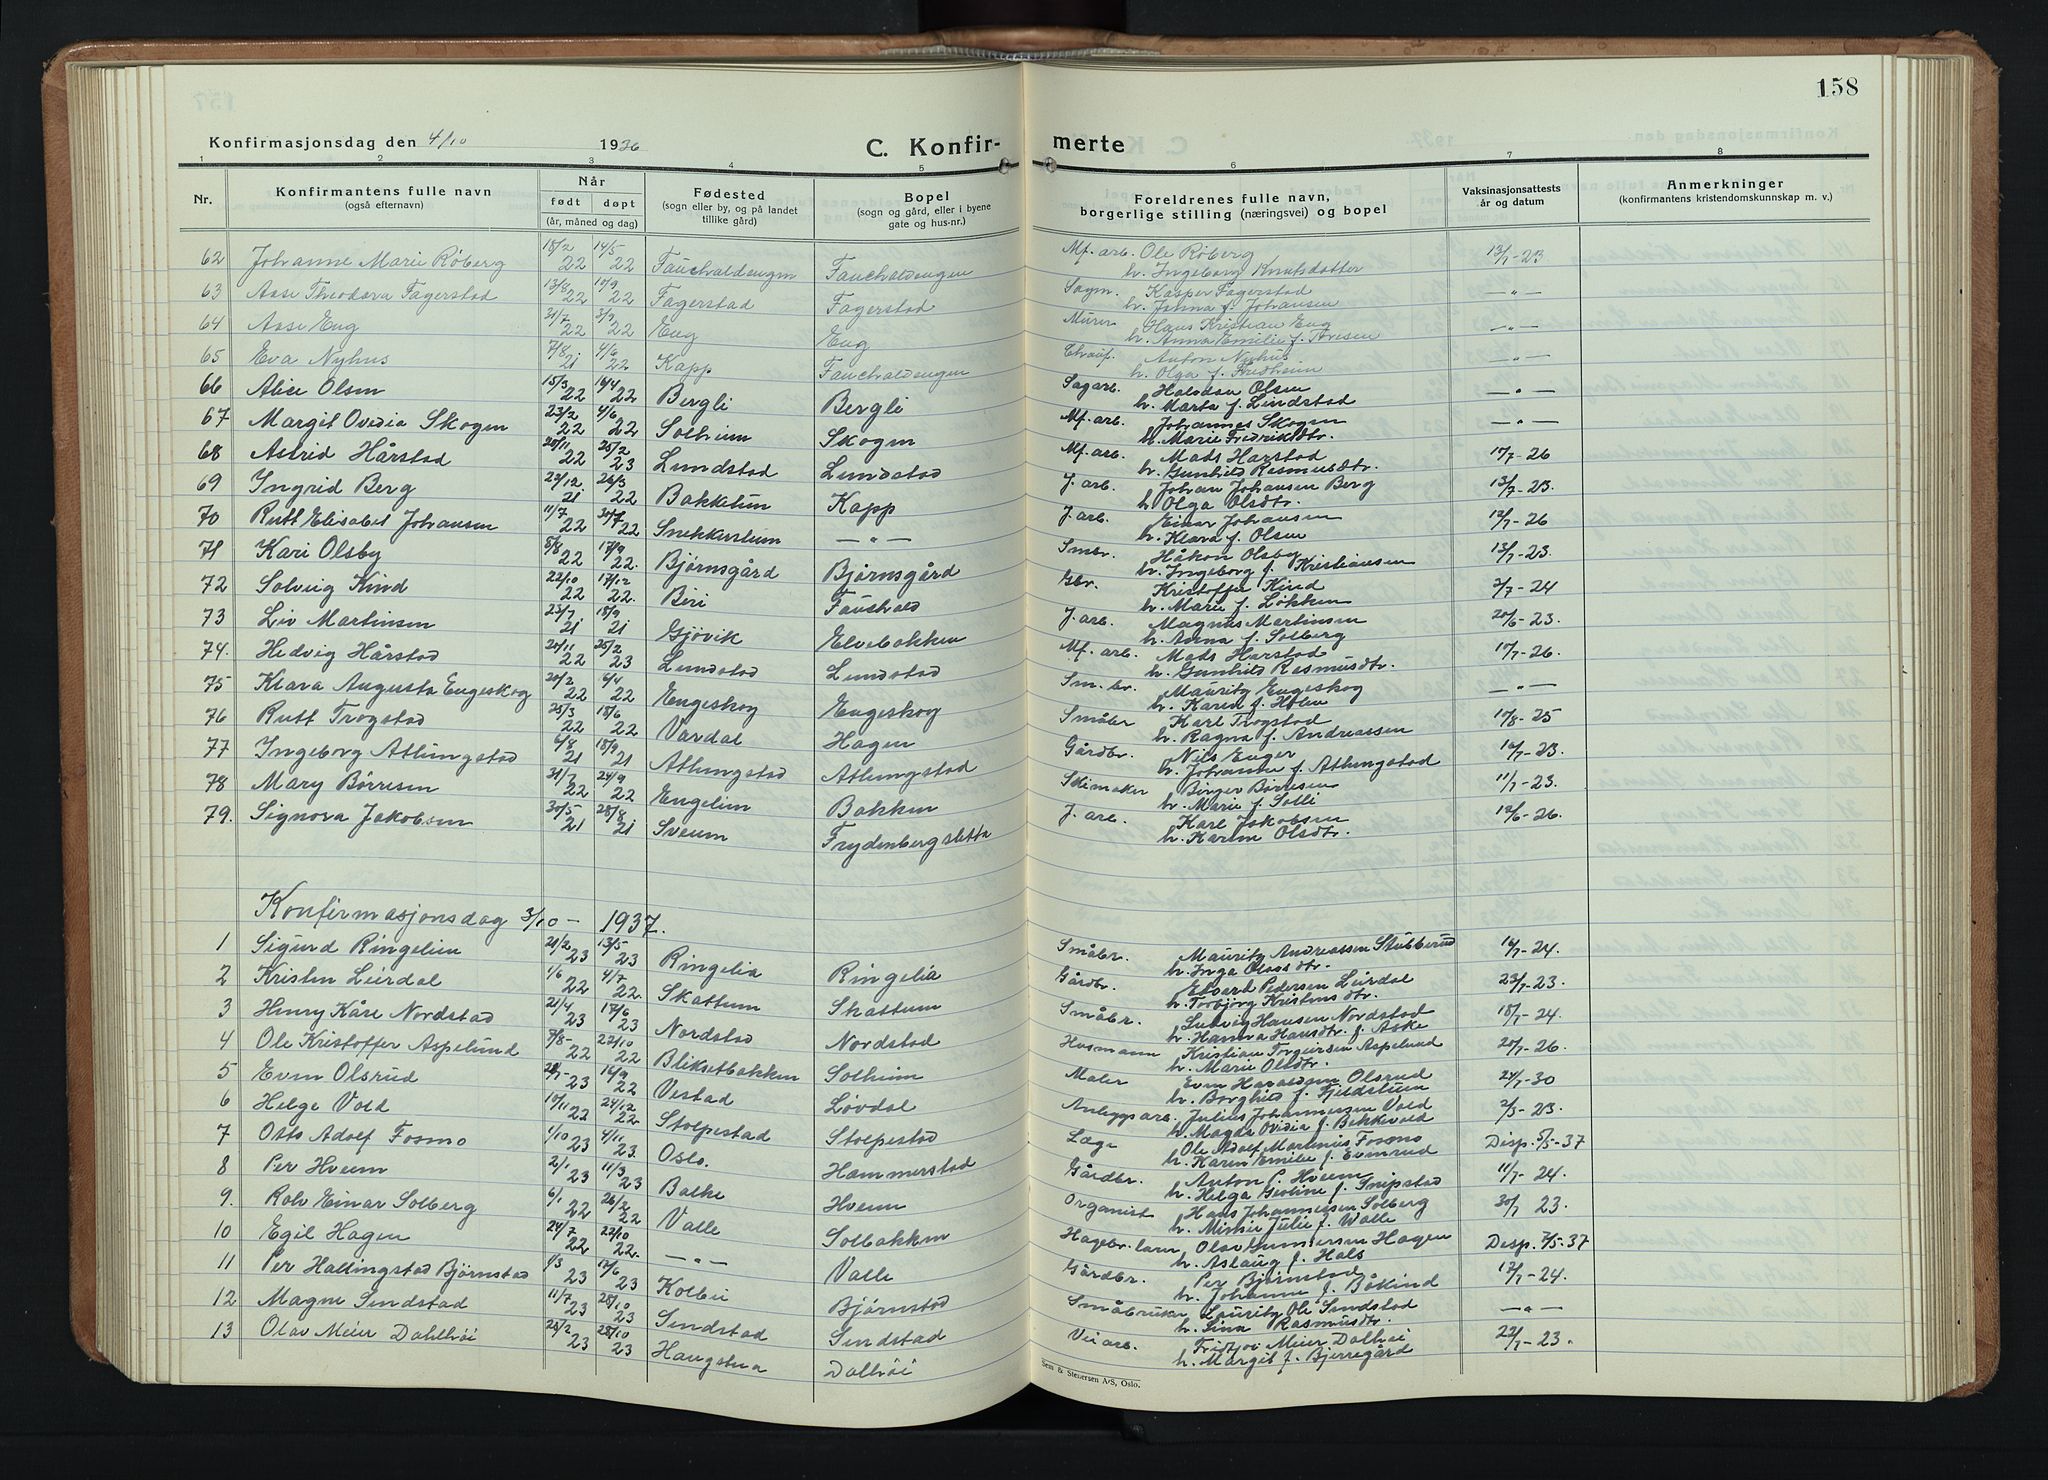 158
Konfirmasjonsdag den 4/10 1936 C. Konfir- merte
1 2 3 4 5 6 7 8
Nr. Konfirmantens fulle navn (også efternavn) Når født døpt (år, måned og dag) Fødested (sogn eller by, og på landet tillike gård) Bopel (sogn og gård, eller i byene gate og hus-nr.) Foreldrenes fulle navn, borgerlige stilling (næringsvei) og bopel Vaksinasjonsattests år og datum Anmerkninger (konfirmantens kristendomskunnskap m. v.)
62 Johanne Marie Røberg 18/2 22 14/5 22 Fauchaldengen Fauchaldengen Mf. arb. Ole Røberg 13/7-23
h. Ingeborg Knutsdatter
63 Aase Theodora Fagerstad 13/8 22 10/9 22 Fagerstad Fagerstad Sagm. Kasper Fagerstad —"—
h. Johna f. Johansen
64 Aase Eng 31/7 22 3/9 22 Eng Eng Murer Hans Kristian Eng —"—
h. Anna Emilie f. Iversen
65 Eva Nyhus 7/8 21 4/6 22 Kapp Fauchaldengen Chauf. Anton Nyhus —"—
h. Olga f.
66 Alice Olsen 15/3 22 16/4 22 Bergli Bergli Sagarb. Halvdan Olsen —"—
h. Marta f. Lindstad
67 Margit Ovidia Skogen 23/2 22 4/6 22 Solheim Skogen Mf. arb. Johannes Skogen —"—
h. Marie Fredriksdtr.
68 Astrid Hårstad 20/11 22 25/2 23 Lundstad Lundstad Mf. arb. Mads Harstad 17/7-26
h. Gunhild Rasmusdtr.
69 Ingrid Berg 22/12 21 26/3 22 Bakketun Kapp J. arb. Johan Johansen Berg 13/7-23.
h. Olga Olsdtr.
70 Rutt Elisabet Johansen 11/7 22 30/7 22 Snekkerstuen —"— J. arb. Einar Johansen 12/7-26
h. Klara f. Olsen
71 Kari Olsby 8/8 22 17/9 22. Bjørnsgård Bjørnsgård Smbr. Håkon Olsby 13/7-23.
h. Ingeborg f. Kristiansen
72 Solveig Kind 22/10 22 17/12 22. Biri Fauchald Gbr. Kristoffer Kind 7/7-24
h. Marie f. Løkken
73 Liv Martinsen 23/7 21 18/9 21 Gjøvik Elvebakken J. arb. Magnus Martinsen 20/6-23.
h. Anna f. Solberg
74. Hedvig Hårstad 20/11 22 25/2 23 Lundstad Lundstad Mf. arb. Mads Harstad 17/7-26.
h. Gunhild Rasmusdtr.
75 Klara Augusta Engeskog 20/2 22 6/4 22 Engeskog Engeskog Sm. br. Mauritz Engeskog —"—
h. Karen f. Holen
76 Rutt Trogstad 25/3 22 18/6 22 Vardal Hagen Småbr Karl Trogstad 17/8-25
h. Ragna f. Andreassen
77 Ingeborg Atlungstad 6/8 21 18/9 21 Atlungstad Atlungstad Gårdbr. Nils Enger 16/7-23.
h. Johanne f. Atlungstad
78 Mary Børresen 31/7 22 24/9 22 Engelien Bakken Skimaker Birger Børresen 11/7-23.
h. Marie f. Solli
79. Signora Jakobsen 30/5 21 28/8 21 Sveum Frydenbergsletta J. arb. Karl Jakobsen 12/6-26.
h. Karen Olsdtr.
Konfirmasjonsdag 3/10 - 1937.
1 Sigurd Ringelien 21/2 23 13/5 23 Ringelia Ringelia Småbr. Mauritz Andreassen Stubberud 16/7-24.
h. Inga Olavsdtr.
2 Kristen Leirdal 1/6 22 4/7 22. Skattum Skattum Gårdbr. Edvard Pedersen Leirdal 23/7-23.
h. Torbjørg Kristensdtr.
3 Henry Kåre Nordstad 21/4 23 17/6 23 Nordstad Nordstad Småbr. Ludvig Hansen Nordstad 18/7-24.
h. Hanna Hansdtr. f. Aske
4 Ole Kristoffer Aspelund 7/8- 22 22/10 22 Bliksetbakken Solheim Husmann Kristian Torgersen Aspelund 20/7-26.
h. Marie Olsdtr.
5 Even Olsrud 23 16/9 22 Vestad Løvdal Maler Even Haraldsen Olsrud 24/7-30
h. Borghild f. Fjeldstuen
6 Helge Vold 10/11 22 24/12 22 Stolpestad Stolpestad Anleggsarb. Julius Johannessen Vold 2/5-23.
h. Magda Ovidia f. Bekkevold
7 Otto Adolf Fosmo 1/10 23 4/11 23. Oslo. Hammerstad Læge Ole Adolf Martinius Fosmo Disp. 5/5-37
h. Karen Emilie f. Evenrud
8 Per Hveem 2/1 23 11/3 23 Balke Hveem Gårdbr. Anton P. Hveem 11/7-24.
h. Helga Geoline f. Snipstad
9. Rolv Einar Solberg 6/1 22 26/2 22 Valle Solbakken Organist Hans Johannessen Solberg 30/7 23.
h. Minnie Julie f. Walle
10 Egil Hagen 24/7 22 22/10 22. —"— Valle Hagebr. lærer Olav Gundersen Hagen Disp. 7/5-37
h. Aslaug f. Hals
11 Per Hallingstad Bjørnstad 1/3 23 17/6 23 Kolbu Bjørnstad Gårdbr. Per Bjørnstad 17/7-24.
h. Johanne f. Båkind
12 Magne Sindstad 11/7 23 28/10 23 Sindstad Sindstad Småbruker Lauritz Ole Sindstad —"—
h. Lina Rasmusdtr.
13 Olav Meier Dalhøi 22/2 23 28/10 23 Haugstua Dalhøi Veiarb. Fridtjov Meier Dalhøi 22/7-23.
h. Margit f. Bjerregård
Sem & Stenersen A/S, Oslo.